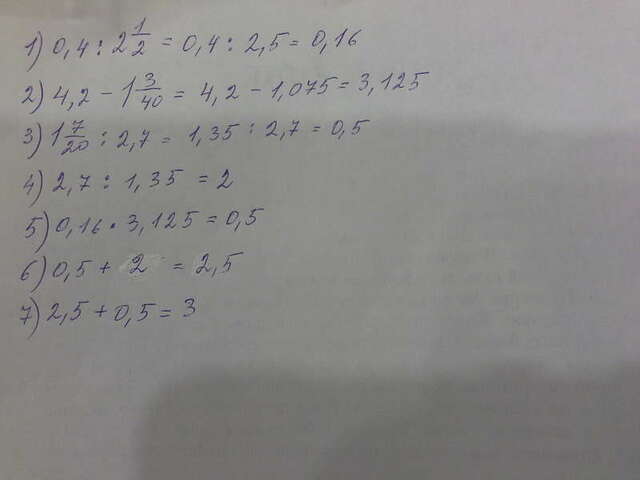 1) 0,4 : 2 1/2 = 0,4 : 2,5 = 0,16
2) 4,2 - 1 3/40 = 4,2 - 1,075 = 3,125
3) 1 7/20 : 2,7 = 1,35 : 2,7 = 0,5
4) 2,7 : 1,35 = 2
5) 0,16 · 3,125 = 0,5
6) 0,5 + 2 = 2,5
7) 2,5 + 0,5 = 3